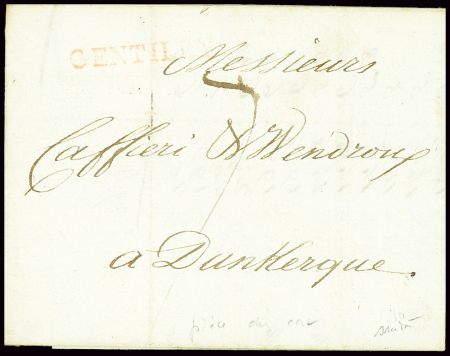 GENTIL
Messieurs
7
Caffieri & Wendroux
a Dunkerque.
pièce du